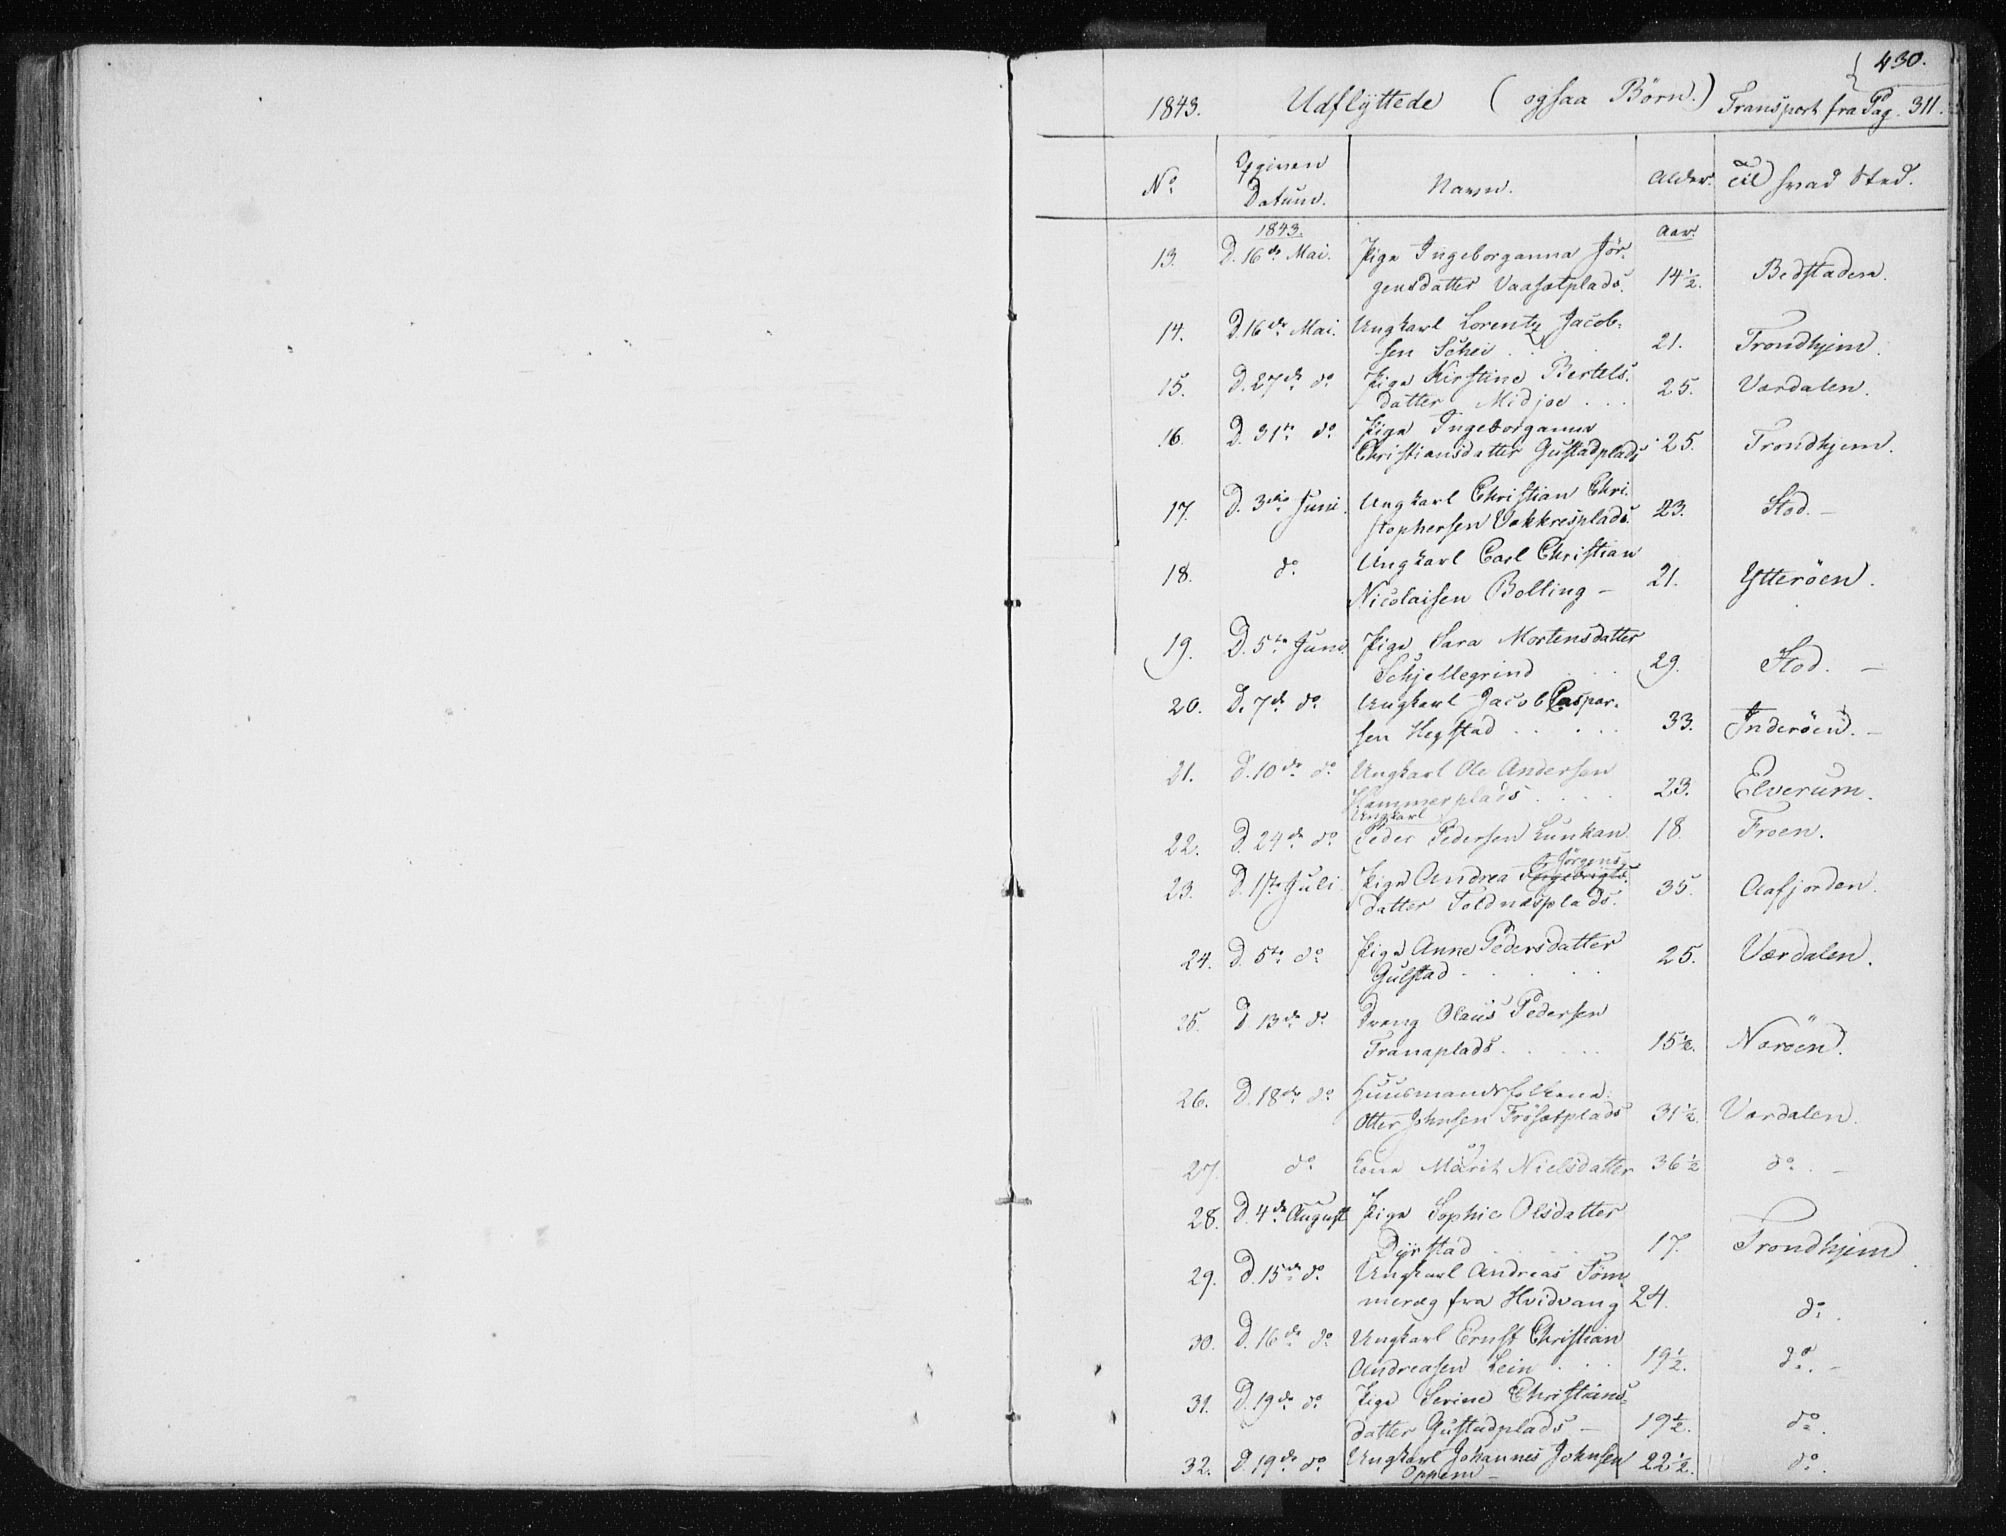 430.
1843. Udflÿttede (ogsaa Börn.) Transport fra Pag. 311.
No. Opgiven Datum. Navn. Alder. Til hvad Sted.
1843. Aar.
13. D. 16de Mai. Pige Ingeborganna Jör-
gensdatter Vaasetplads. 14½. Bedstaden.
14. D. 16de Mai. Ungkarl Lorentz Jacob-
sen Schei . . . 21. Trondhjem.
15. D. 27de do Pige Kirstine Bertels-
datter Midjoe . . . 25. Værdalen.
16. D. 31te do Pige Ingeborganna
Christiansdatter Gustadplads 25. Trondhjem.
17. D. 3die Juni. Ungkarl Christian Chri-
stophersen Vækkresplads. 23. Stod. –
18. do Ungkarl Carl Christian
Nicolaisen Bolling – 21. Ytteröen.
19. D. 5te Juni Pige Sara Mortensdatter
Schjellegrind . . 29. Stod. –
20. D. 7de do Ungkarl Jacob Caspar-
sen Hegstad . . . . . 33. Inderöen. –
21. D. 10de do Ungkarl Ole Andersen
Hammerplads . . . . 23. Elverum.
Ungkarl
22. D. 24de do Peder Pedersen Lunkan 18 Froen.
Jörgens-
23. D. 1ste Juli Pige Andrea Ingebrigts-
datter Toldnæsplads. 35. Aafjorden.
24. D. 5te do Pige Anne Pedersdatter
Gulstad . . . . . 25. Værdalen.
25. D. 13de do Dreng Olaüs Pedersen
Tranaplads. . . . . 15½. Næröen.
26. D. 18de do Huusmandsfolkene:
Otter Johnsen Frösetplads 31½. Værdalen.
og
27. do Kone Marit Nielsdatter 36½ do. –
28. D. 4de August Pige Sophie Olsdatter
Dÿrstad . . . . 17. Trondhjem
29. D. 15de do Ungkarl Andreas Töm-
meræg fra Hvidvang 24. do.
30. D. 16de do Ungkarl Ernst Christian
Andreasen Lein . . . 19½. do. –
31. D. 19de do Pige Serine Christians-
datter Gustadplads – 19½. do.
32. D. 19de do Ungkarl Johannes Johnsen 22½. do.
Oppem –